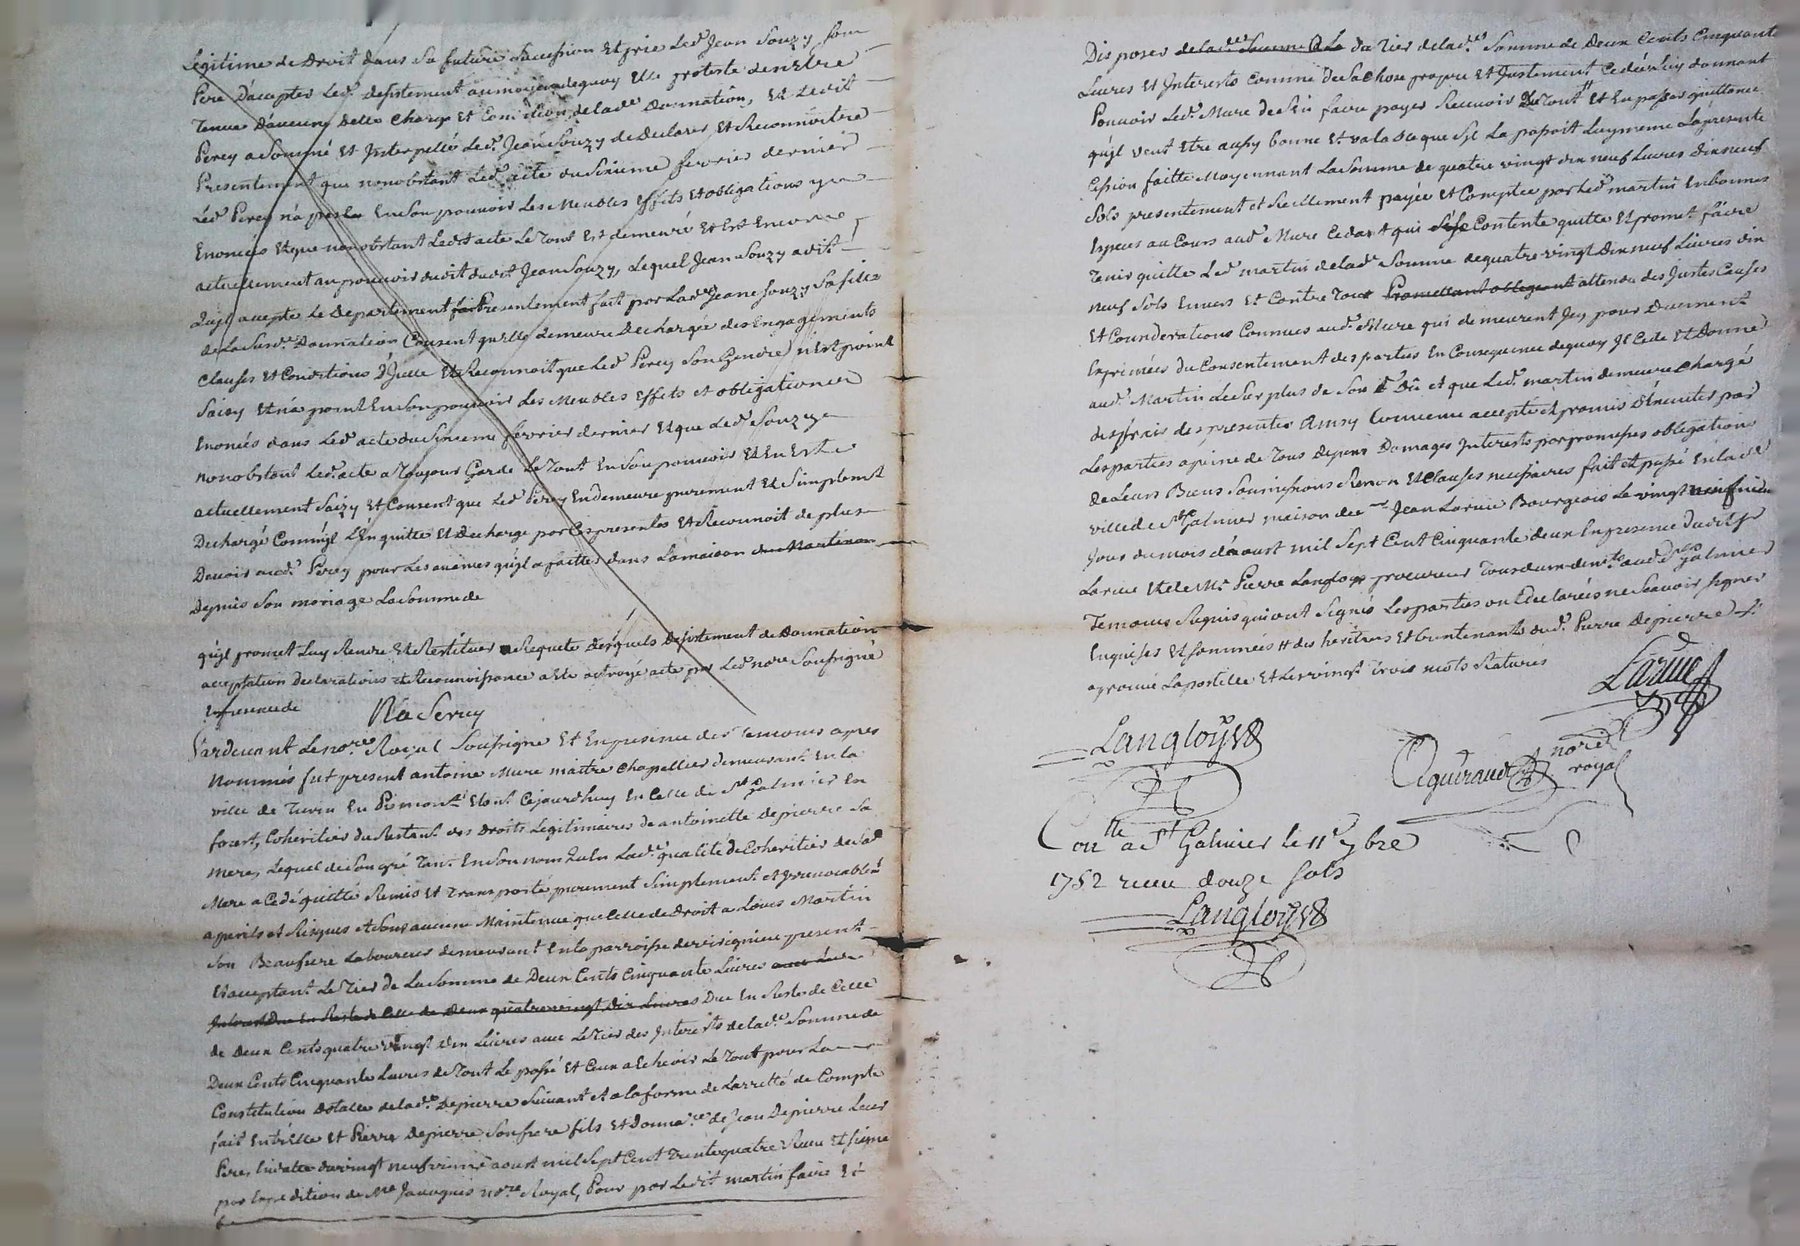 Legitime de Droit dans Sa future Succession Et prie Led. Jean Souzy Son
Pere D'accepter Led. desistement au moyen dequoy Elle proteste den Etre
Tenue D'aucune Delle Charge Et Condition delade Donnation, Et Ledit
Percy a Sommé Et Interpellé Led. Jean Souzy de Declarer Et Reconnoitre
Presentement que nonobstant Led. acte du Sixieme fevrier dernier
Led Percy n'a pas En Son pouvoir Les Meubles Effets Et obligations y
Enoncés Et que nonobstant Ledit acte Le Tout Est demeuré Et Est Encore
actuellement au pouvoir dudit Jean Souzy, Lequel Jean Souzy a dit
qu'jl accepte Le Departement fait Presentement fait par Lade Jeane Souzy Sa fille
de La Susd. Donnation Consent qu'elle demeure Dechargée des Engagements
Clauses Et Conditions d'Jcelle Et Reconnoit que Led Percy Son Gendre n'Est point
Saizy Et n'a point En Son pouvoir Les Meubles Effets et obligations
Enoncés dans Led acte du Sixieme fevrier dernier Et que Led Souzy
nonobstant Led. acte a Toujours Gardé Le Tout En Son pouvoir Et En Est
actuellement Saizy Et Consent que Led Percy En demeure purement Et Simplemt
Dechargé Comme jl L'En quitte Et decharge par Ces presentes Et Reconnoit de plus
Devoir aud. Percy pour Les avances qu'jl a faittes dans La maison du Martinon
Depuis Son mariage La Somme de
qu'jl promet Luy Rendre Et Restituer a Requete Desquels Desistement de Donnation
acceptation Declarations et Reconnoissance a Eté octroyé acte par Led nore Soussigné
En presence de
Pardevant Le nore Royal Soussigné Et En presence des Temoins apres
Nommés fut present antoine Mure maitre Chapellier demeurant En la
ville de Turin En Piemont Etant Cejourdhuy En Celle de St galmier En
forest, Coheritier du Restant des Droits Legitimaires de antoinette depierre Sa
Mere, Lequel de Son gré Tant En Son nom qu'En Lade qualité de Coheritier de Sad
Mere a Cedé quitté Remis Et Transporté purement Simplement et Jrrevocablemt
a perils et Risques et Sans aucune Maintenue que Celle de Droit a Louis Martin
Son Beaufrere Laboureur demeurant En la parroisse de present
Et acceptant Le Tier de La Somme de Deux Cents Cinquante Livres avec
Interet Due En Reste de Celle de Deux quatrevingt Dix Livres Due En Reste de Celle
de deux Cents quatre vingt dix Livres avec Le Tier des Jnterests delade. Somme de
Deux Cents Cinquante Livres de Tout Le passé Et Ceux a Echeoir Le Tout pour La
Constitution Dotalle delade. Depierre Suivant et a la forme de Larretté de Compte
fait Entr'Elle Et Pierre Depierre Son frere fils Et Donnare. de Jean Depierre Leur
Pere, En datte du vingt neufvieme aoust mil Sept Cent Trentequatre Receu Et Signé
par Expedition de Me Jauvgnis nore. Royal, Pour par Ledit Martin faire Et
Disposer delade Somme & La du Tier delade. Somme de Deux Cents Cinquante
Livres Et Interests Comme de Sa Chose propre Et Justement Cedée Luy donnant
Pouvoir Led. Mure de S'En faire payer Recevoir Le Tout Et En passer quittance
qu'jl veut Etre aussy bonne Et valable que S'jl La passoit Luy meme La presente
Cession faitte Moyennant La Somme de quatre vingt dix neuf Livres dix neuf
Sols presentement et Reellement payée et Comptée par Led Martin En bonnes
Especes au Cours aud Mure Cedant qui S'En Contente quitte Et promet faire
Tenir quitte Led Martin delade Somme de quatre vingt dix neuf Livres dix
neuf Sols Envers Et Contre Tous Promettant obligeant attendu des Justes Causes
Et Considerations Connues aud. Mure qui demeurent Jcy pour Duement
Exprimées du Consentement des parties En Consequence dequoy Jl Cede Et Donne
aud. Martin Le Surplus de Son Dû et que Led. Martin demeure Chargé
des frais des presentes Ainsy Convenu accepté et promis D'Executer par
Les parties a peine de Tous Depens Domages Interests par promesses obligations
de Leurs Biens Soumissions Renon Et Clauses necessaires fait et passé En lade
ville de St Galmier maison de Jean Larue Bourgeois Le vingt neufvieme
jour du mois d'aoust mil Sept Cent Cinquante deux En presence dudit Sr
Larue Et de Me Pierre Langloys procureur aud. St Galmier
Temoins Requis qui ont Signés Les parties ont declarées ne Scavoir Signer
Enquises Et Sommées # des heritiers Et bientenants dud. Pierre Depierre
aprouvé La postille Et Les vingt Trois mots Raturés
Larue
Langloys
Aguiraud nore royal
Conlle a St Galmier le 11e 7bre
1752 receu douze Sols
Langloys